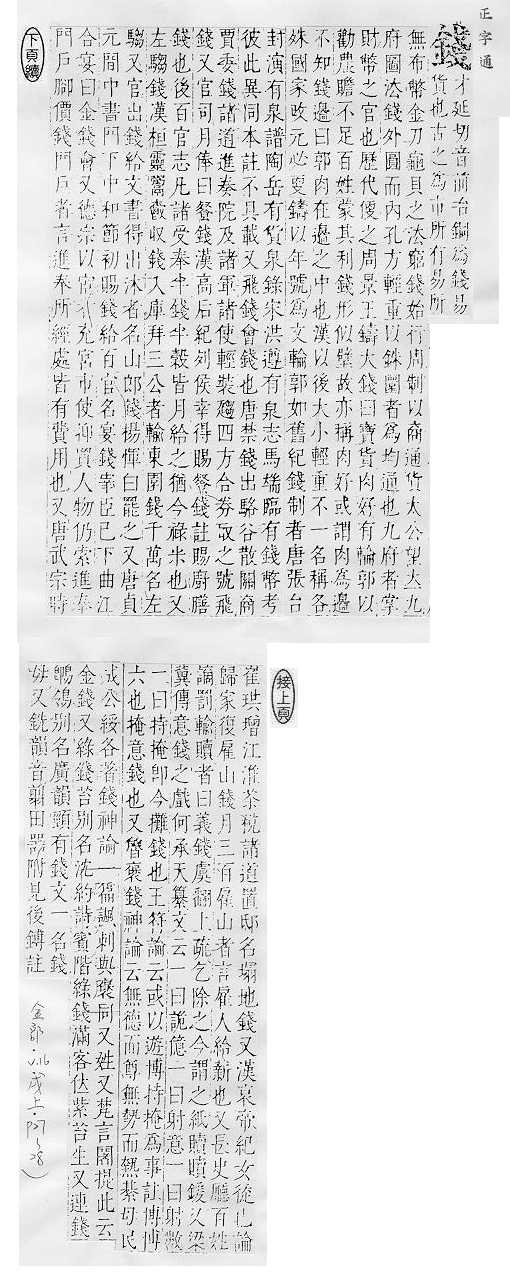 正字通
錢
才延切音前冶銅爲錢易
貨也古之爲市所有易所
無布幣金刀龜貝之法窮錢始行周制以商通貨太公望立九
府圜法錢外圓而內孔方輕重以銖圜者爲均通也九府者掌
財幣之官也歷代便之周景王鑄大錢曰寶貨肉好有輪郭以
勸農贍不足百姓蒙其利錢形似璧故亦稱肉好或謂肉爲邊
不知錢邊曰郭肉在邊之中也漢以後大小輕重不一名稱各
殊國家改元必更鑄以年號爲文輪郭如舊紀錢制者唐張台
封演有泉譜陶岳有貨泉錄宋洪遵有泉志馬端臨有錢幣考
彼此異同本註不具載又飛錢會錢也唐禁錢出駱谷散關商
賈委錢諸道進奏院及諸軍諸使輕裝趨四方合券取之號飛
錢又官司月俸曰餐錢漢高后紀列侯幸得賜餐錢註賜廚膳
錢也後百官志凡諸受奉半錢半穀皆月給之猶今祿米也又
左騶錢漢桓靈鬻爵收錢入庫拜三公者輸東園錢千萬名左
騶又官出錢給文書得出沐者名山郎錢楊惲白罷之又唐貞
元間中書門下中和節初賜錢給百官名宴錢宰臣已下曲江
合宴曰金錢會又德宗以宦者充宮市使抑買人物仍索進奉
門戶腳價錢門戶者言進奉所經處皆有費用也又唐武宗時
下頁續
接上頁
崔珙增江淮茶稅諸道置邸名塌地錢又漢哀帝紀女徒已論
歸家復雇山錢月三百雇山者言雇人給薪也又長吏廳百姓
謫罰輸贖者曰義錢虞翻上疏乞除之今謂之紙贖贖鍰又梁
冀傳意錢之戲何承天纂文云一曰詭億一曰射意一曰射數
一曰持掩卽今攤錢也王符論云或以遊博持掩爲事註博博
六也掩意錢也又魯褒錢神論云無德而尊無勢而熱綦母氏
成公綏各著錢神論一篇諷刺與褒同又姓又梵言閣提此云
金錢又綠錢苔別名沈約詩賓階綠錢滿客位紫苔生又連錢
鶺鴒別名廣韻頸有錢文一名錢
母又銑韻音翦田器附見後鎛註
金部．v.16
戌上．P27~28)